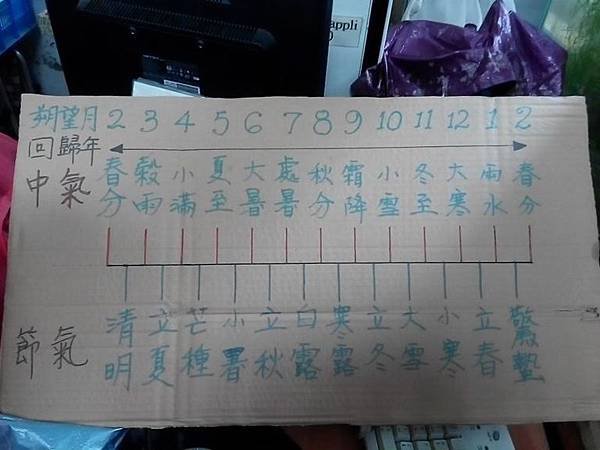 appli
朔望月 2 3 4 5 6 7 8 9 10 11 12 1 2
回歸年
中氣 春分 穀雨 小滿 夏至 大暑 處暑 秋分 霜降 小雪 冬至 大寒 雨水 春分
節氣 清明 立夏 芒種 小署 立秋 白露 寒露 立冬 大雪 小寒 立春 驚蟄